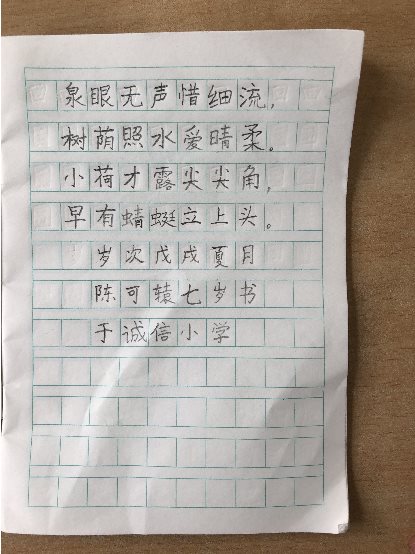 泉眼无声惜细流，
树荫照水爱晴柔。
小荷才露尖尖角，
早有蜻蜓立上头。
岁次戊戌夏月
陈可辕七岁书
于诚信小学